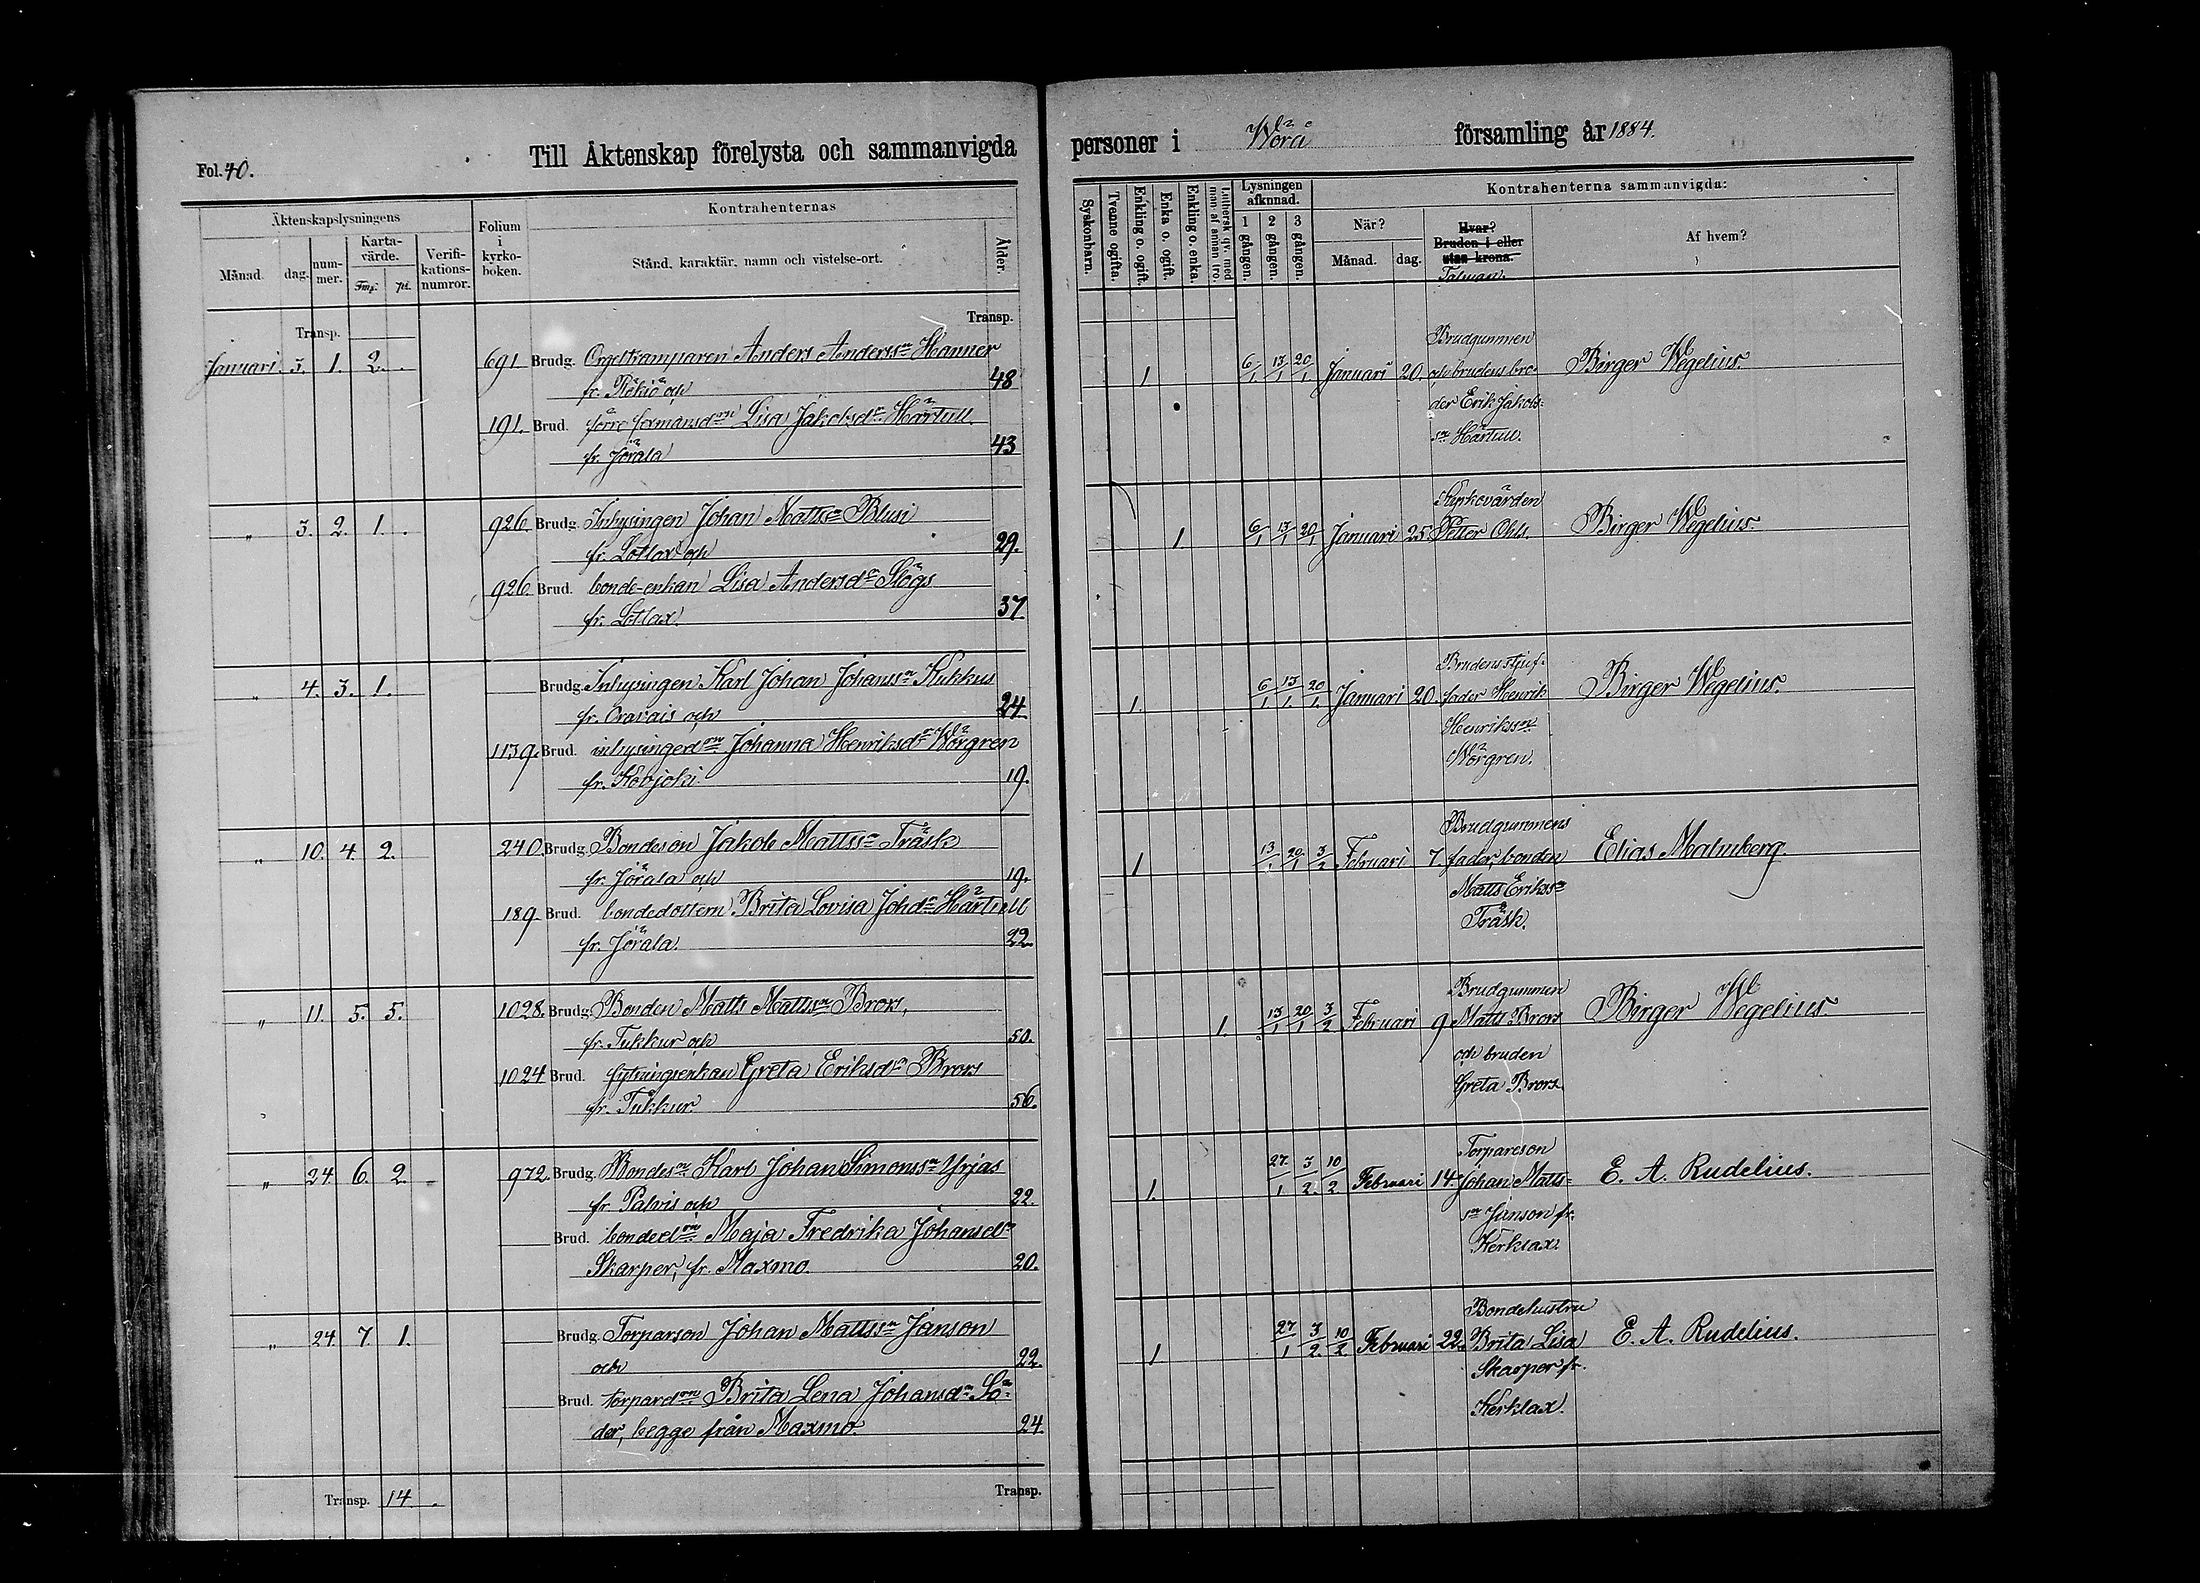 Fol. 40.
Till Äktenskap förelysta och sammanvigda personer i Wörå församling år 1884.
Äktenskapslysningens
Folium i kyrko-boken.
Kontrahenternas
Månad. dag. num-mer. Karta-värde. Fmk. pi. Verifi-kations-numror.
Stånd, karaktär, namn och vistelse-ort.
Ålder.
Syskonbarn.
Tvenne ogifta.
Enkling o. ogift.
Enka o. ogift.
Enkling o. enka.
Luthersk qv. med mnn af annan tro.
Lysningen afknnad.
1 gången. 2 gången. 3 gången.
Kontrahenterna sammanvigda:
När?
Månad. dag.
Hvar? Bruden i eller utan krona.
Talman.
Af hvem?
Transp. Transp.
Januari 3. 1. 2. 691. Brudg. Orgeltramparen Anders Anderssn Hanner
fr. Rökiö och 48
191. Brud. förre Lisa Jakobsdr Härtull
fr. Jörala 43
1 6/1 13/1 20/1 Januari 20.
Brudgummen
och brudens bro-
der Erik Jakobs-
sn Härtull.
Birger Wegelius.
" 3. 2. 1. 926. Brudg. Inhysingen Johan Mattssn Blusi
fr. Lotlax och 29.
926. Brud. bonde-enkan Lisa Andersdr Slögs
fr. Lotlax. 37
1. 6/1 13/1 20/1 Januari 25
Kyrkovärden
Petter Ohls.
Birger Wegelius.
" 4. 3. 1. Brudg. Inhysingen Karl Johan Johanssn Kukkus
fr. Oravais och 24
1139. Brud. inhysingedrn Johanna Henriksdr Wörgren
fr. Kovjoki 19.
1. 6/1 13/1 20/1 Januari 20.
Brudens stjuf-
fader Henrik
Henrikssn
Wörgren.
Birger Wegelius.
" 10. 4. 2. 240. Brudg. Bondeson Jakob Mattssn Träsk
fr. Jörala och 19.
189. Brud. bondedottern Brita Lovisa Johdr Härtull
fr. Jörala. 22.
1 13/1 20/1 3/2 Februari 7.
Brudgummens
fader, bonden
Matts Erikssn
Träsk.
Elias Malmberg
" 11. 5. 5. 1028. Brudg. Bonden Matts Mattssn Brors,
fr. Tukkur och 50.
1024 Brud. sytningsenkan Greta Eriksdr Brors
fr. Tukkur. 56.
1. 13/1 20/1 3/2 Februari 9
Brudgummen
Matts Brors
och bruden
Greta Brors
Birger Wegelius
" 24 6. 2. 972. Brudg. Bondesn Karl Johan Simonssn Yrjas
fr. Palvis och 22.
Brud. bondedrn Maja Fredrika Johansdr
Skarper, fr. Maxmo. 20.
1. 27/1 3/2 10/2 Februari 14.
Torpareson
Johan Matts-
sn Janson fr.
Kerklax.
E. A. Rudelius.
" 24. 7. 1. Brudg. Torparson Johan Mattssn Janson
och 22.
Brud. torpardrn Brita Lena Johansdr Sö-
der, begge från Maxmo. 24.
1 27/1 3/2 10/2 Februari 22.
Bondehustru
Brita Lisa
Skarper fr.
Kerklax.
E. A. Rudelius.
Transp. 14 Transp.